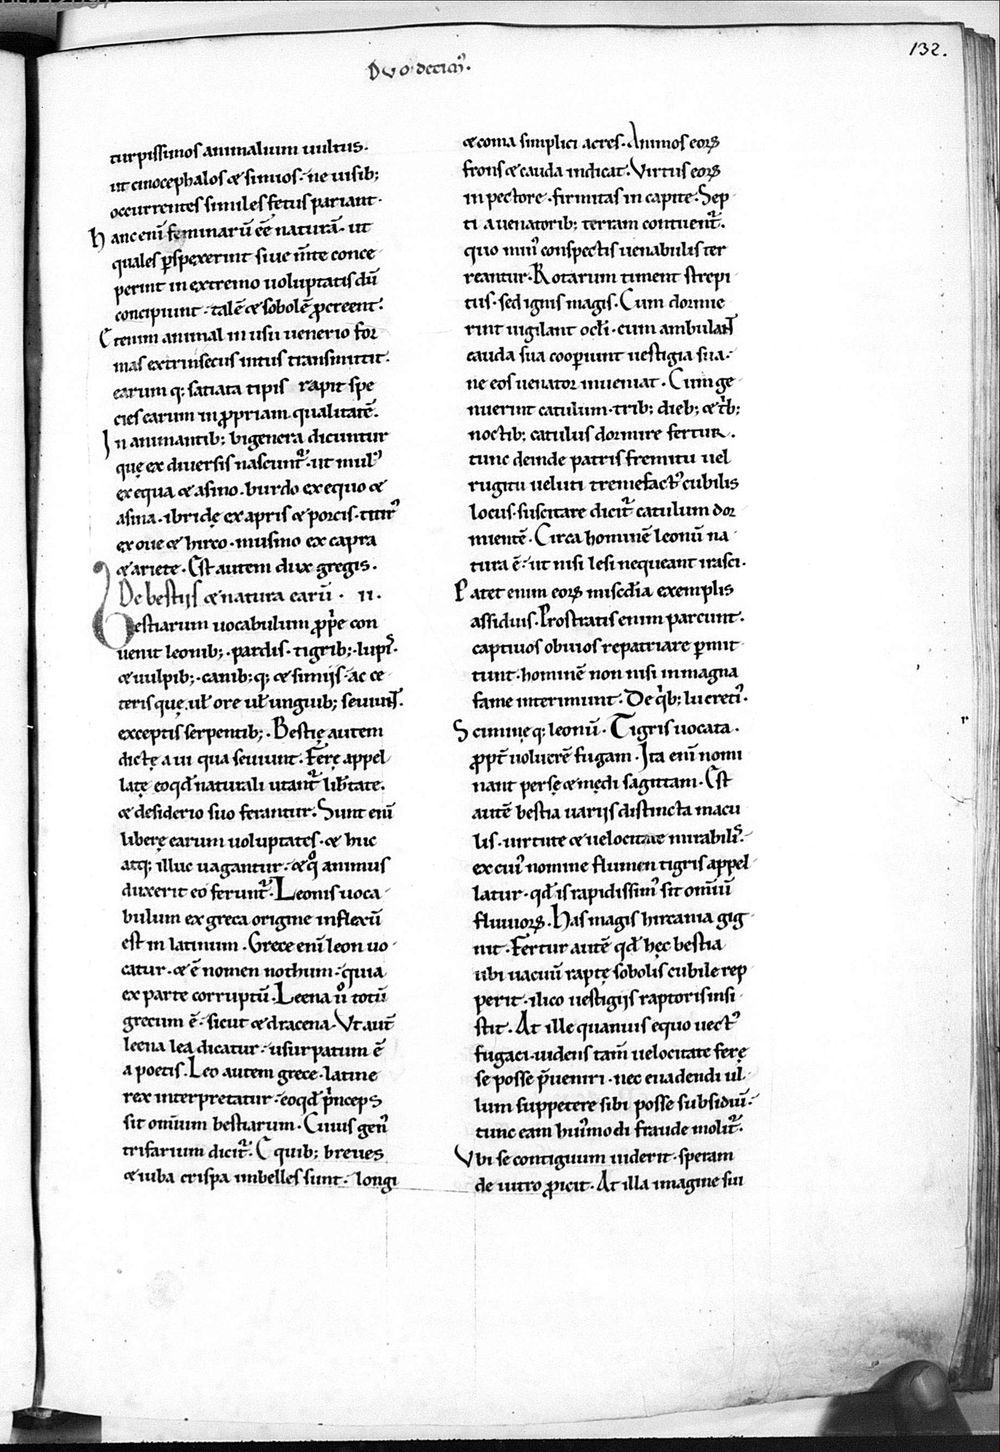 Duodecim᷒.
132.
turpissimos animalium uultus.
ut cinocephalos & simios. ne uisib;
occurrentes similes fetus pariant.
hanc eni᷒ feminaru᷒ ee᷒ natura᷒. ut
quales ꝑspexerint siue in᷒te conce
perint in extremo uoluptatis du᷒
concipiunt. tale᷒ & sobole᷒ ꝓcreent.
Etenim animal in usu uenerio for
mas extrinsecus intus transmittit.
earum q; satiata tipis rapit spe
cies earum in ꝓpriam qualitate᷒.
In animantib; bigenera dicuntur
quę ex diuersis nascunt᷒. ut mul᷒
ex equa & asino. burdo ex equo &
asina. ibridę ex apris & porcis. titir᷒
ex oue & hirco. musino ex capra
& ariete. Est autem dux gregis.
De bestijs & natura earu᷒. II.
Bestiarum uocabulum ꝓp᷒e con
uenit leonib;. pardis. tigrib;. lup᷒.
& uulpib;. canib; q; & simijs. ac ce
teris quę. ul᷒ ore ul᷒ unguib; seuiun᷒t.
exceptis serpentib;. Bestię autem
dictę a ui qua seuiunt. Ferę appel
latę eo qd᷒ naturali utant᷒ lib᷒tate.
& desiderio suo ferantur. Sunt eni᷒
liberę earum uoluptates. & huc
atq; illuc uagantur. & q°᷒ animus
duxerit eo ferunt᷒. Leonis uoca
bulum ex greca origine inflexu᷒
est in latinum. Grece eni᷒ leon uo
catur. & e᷒ nomen nothum. quia
ex parte corruptu᷒. Leena u°᷒ totu᷒
grecum e᷒. sicut & dracena. Vt aut᷒
leena lea dicatur. usurpatum e᷒
a poetis. Leo autem grece. latine
rex interpretatur. eo qd᷒ p᷒nceps
sit omnium bestiarum. Cuius gen᷒
trifarium dicit᷒. E quib; breues
& iuba crispa imbelles sunt. longi
& coma simplici acres. Animos eoꝝ
frons & cauda indicat. Virtus eoꝝ
in pectore. firmitas in capite. Sep
ti a uenatorib; terram contuent᷒.
quo min᷒ conspectis uenabulis ter
reantur. Rotarum timent strepi
tus. sed ignis magis. Cum dormie
rint uigilant oc᷒li. cum ambulan᷒t
cauda sua cooꝑiunt uestigia sua.
ne eos uenator inueniat. Cum ge
nuerint catulum. trib; dieb; & t᷒b;
noctib; catulus dormire fertur.
tunc deinde patris fremitu uel
rugitu ueluti tremefact᷒ cubilis
locus. suscitare dicit᷒ catulum dor
miente᷒. Circa homine᷒ leonu᷒ na
tura e᷒. ut nisi lesi nequeant irasci.
Patet enim eoꝝ mis᷒cdia exemplis
assiduis. Prostratis enim parcunt.
captiuos obuios repatriare ꝑmit
tunt. homine᷒ non nisi in magna
fame interimunt. De q᷒b; lucreti᷒.
Scimnię q; leonu᷒. Tigris uocata.
ꝓpt᷒ uolucre᷒ fugam. Ita eni᷒ nomi
nant persę & medi sagittam. Est
aute᷒ bestia uarijs distincta macu
lis. uirtute & uelocitate mirabili᷒.
ex cui᷒ nomine flumen tigris appel
latur. qd᷒ is rapidissim᷒ sit omniu᷒
fluuioꝝ. Has magis hircania gig
nit. Fertur aute᷒ qd᷒ hęc bestia
ubi uacuu᷒ raptę sobolis cubile rep
perit. ilico uestigijs raptoris insi
stit. At ille quamuis equo uect᷒
fugaci. uidens tam᷒ uelocitate ferę
se posse p᷒ueniri. nec euadendi ul
lum suppetere sibi posse subsidiu᷒.
tunc eam hui᷒modi fraude molit᷒.
Vbi se contiguum uiderit. speram
de uitro ꝓicit. At illa imagine sui